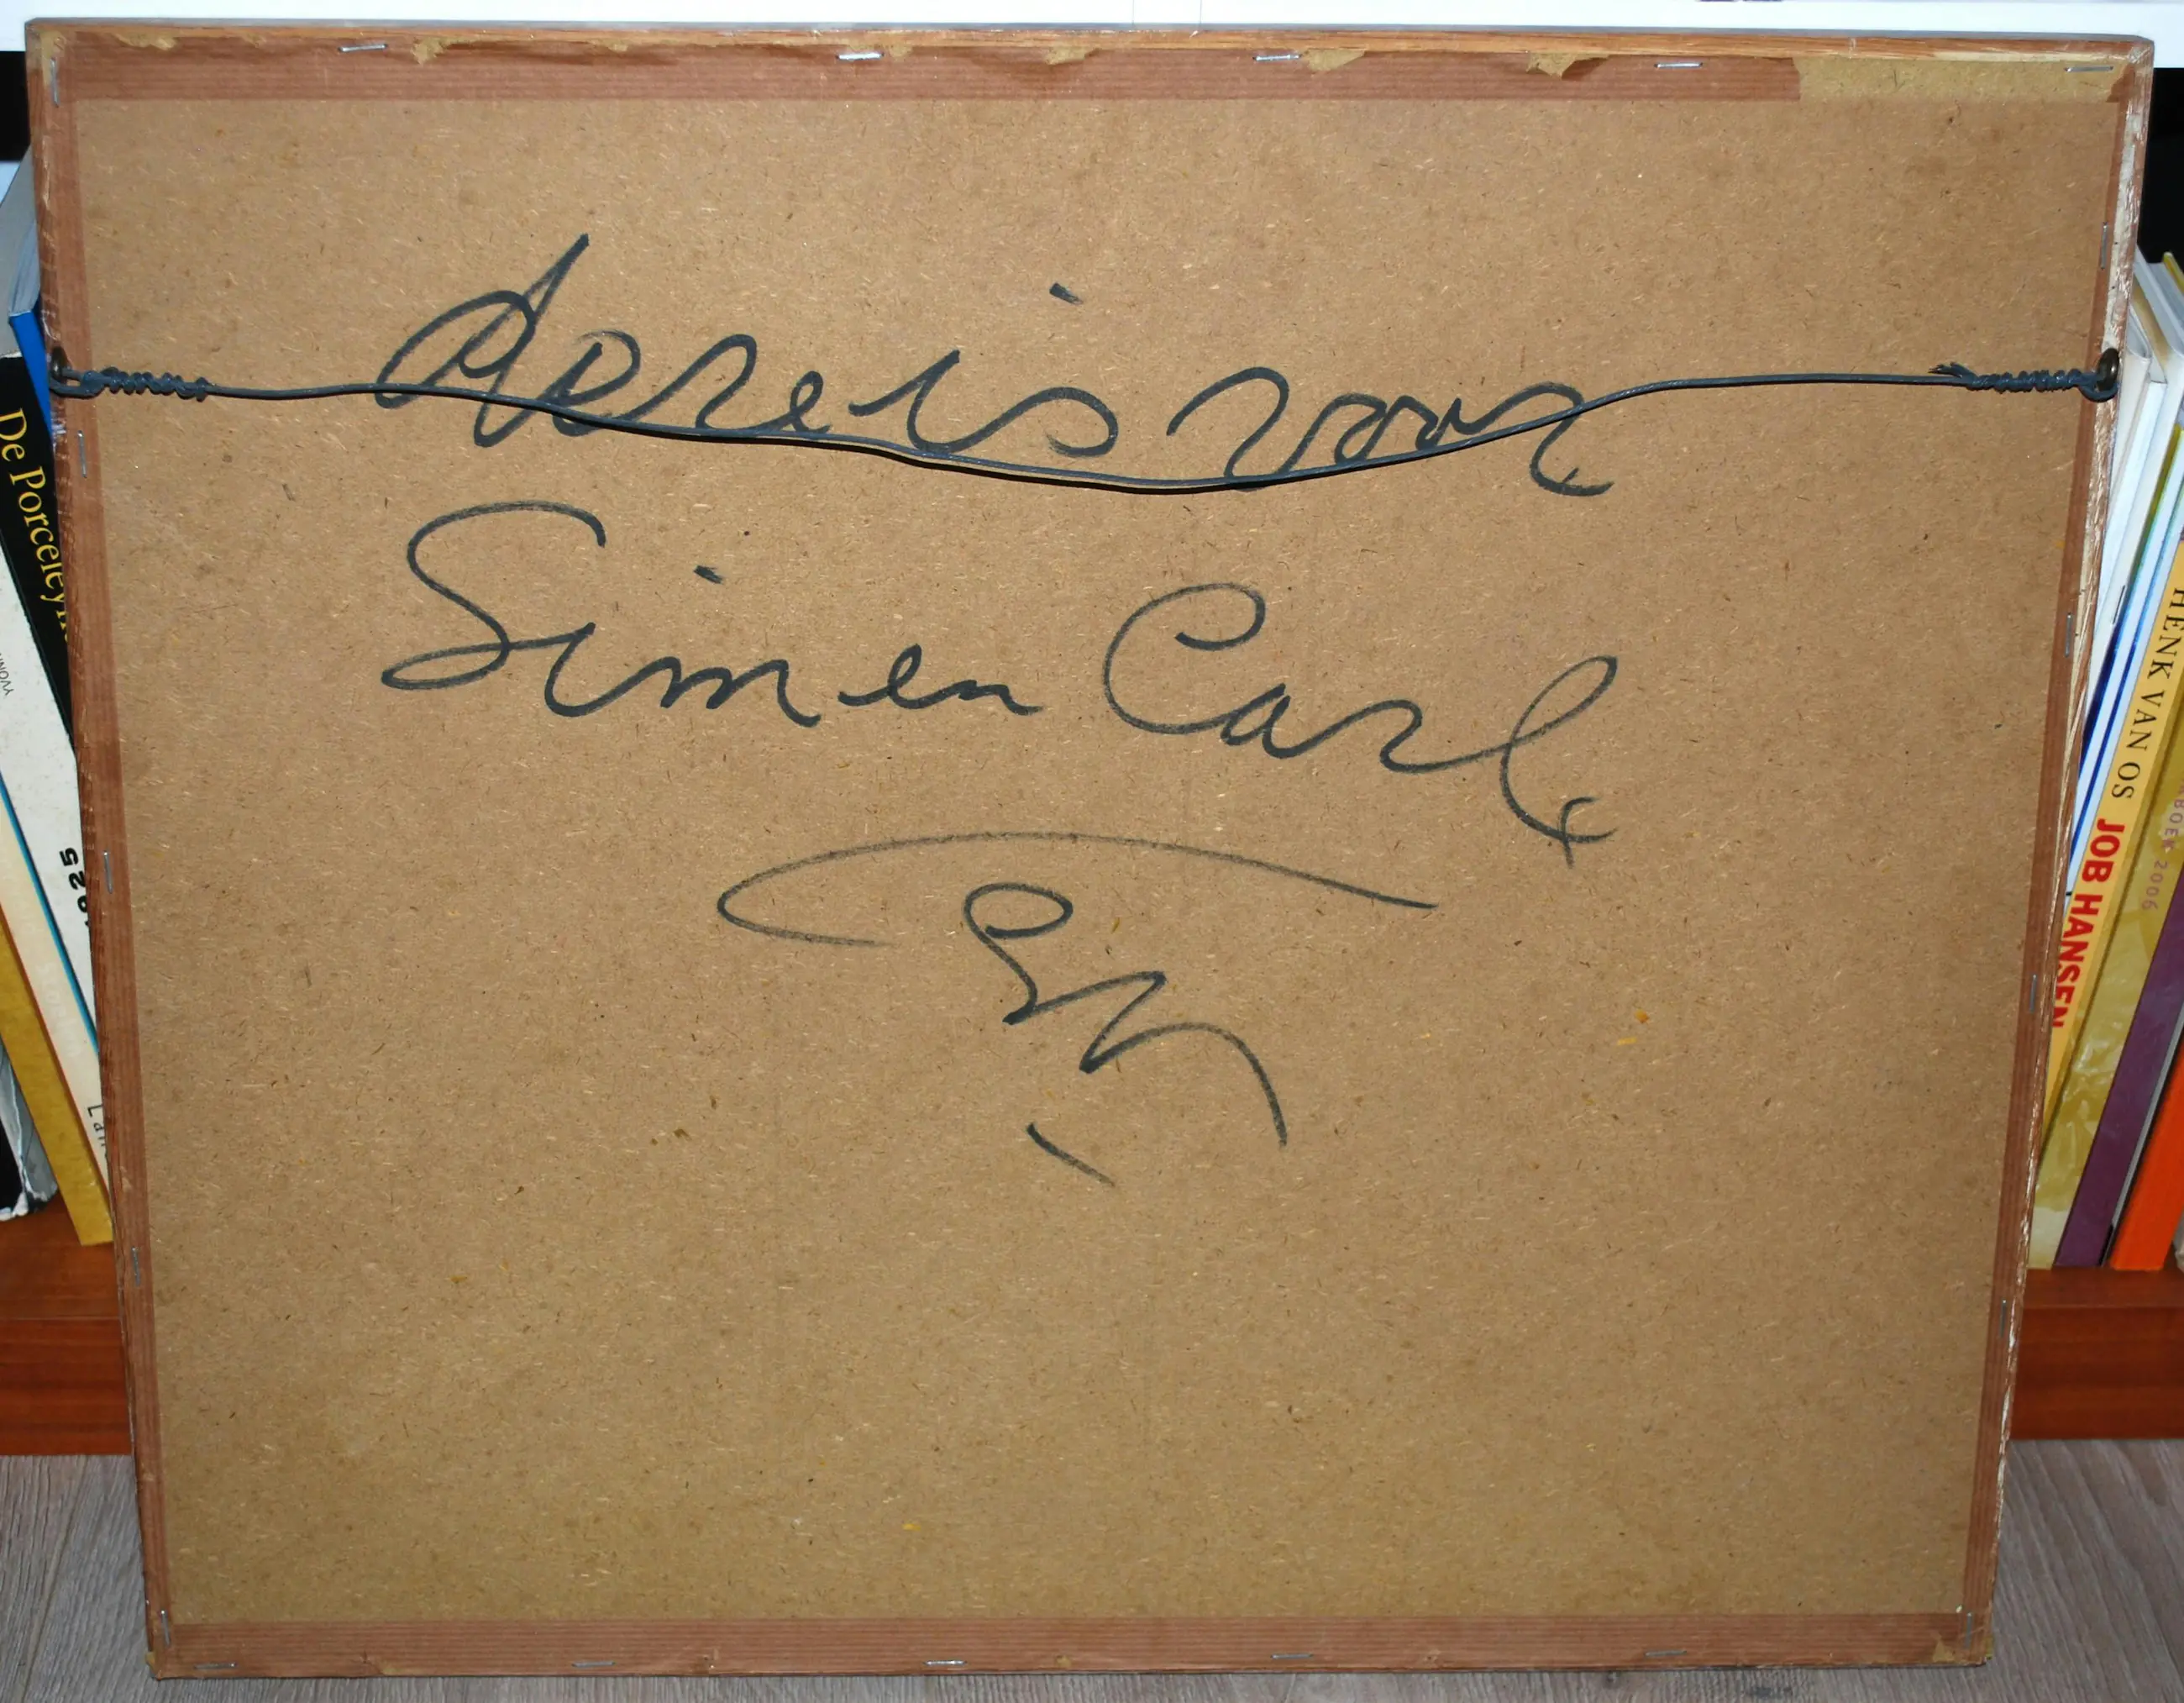 deze is voor
Sim en Carl
De Porceley
1925
HENK VAN OS JOB HANSEN
BOEK 2006